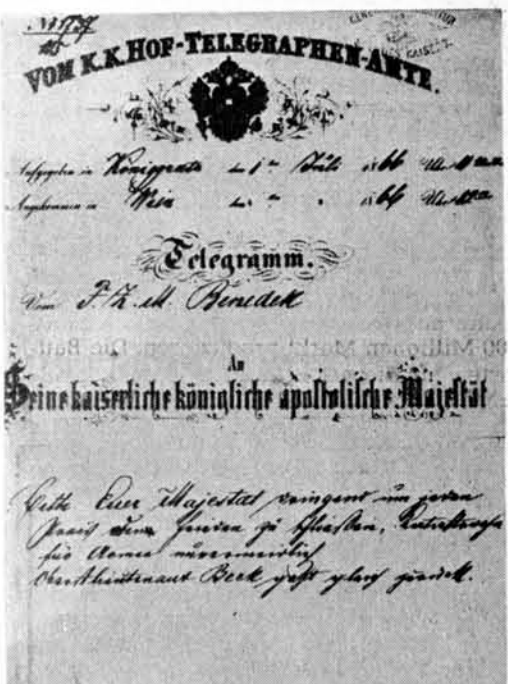 VOM K.K. HOF-TELEGRAPHEN-AMTE.
Aufgegeben in Königgrätz den 1ten Juli 1866 Uhr
Angekommen in Wien den " " 1866 Uhr
Telegramm.
Vom F. Z. M. Benedek
An
Seine kaiserliche königliche apostolische Majestät
Bitte Euer Majestät dringend um jeden
Preis den Frieden zu schließen, Katastrophe
für Armee unvermeidlich
Oberstlieutenant Beck geht gleich zurück.